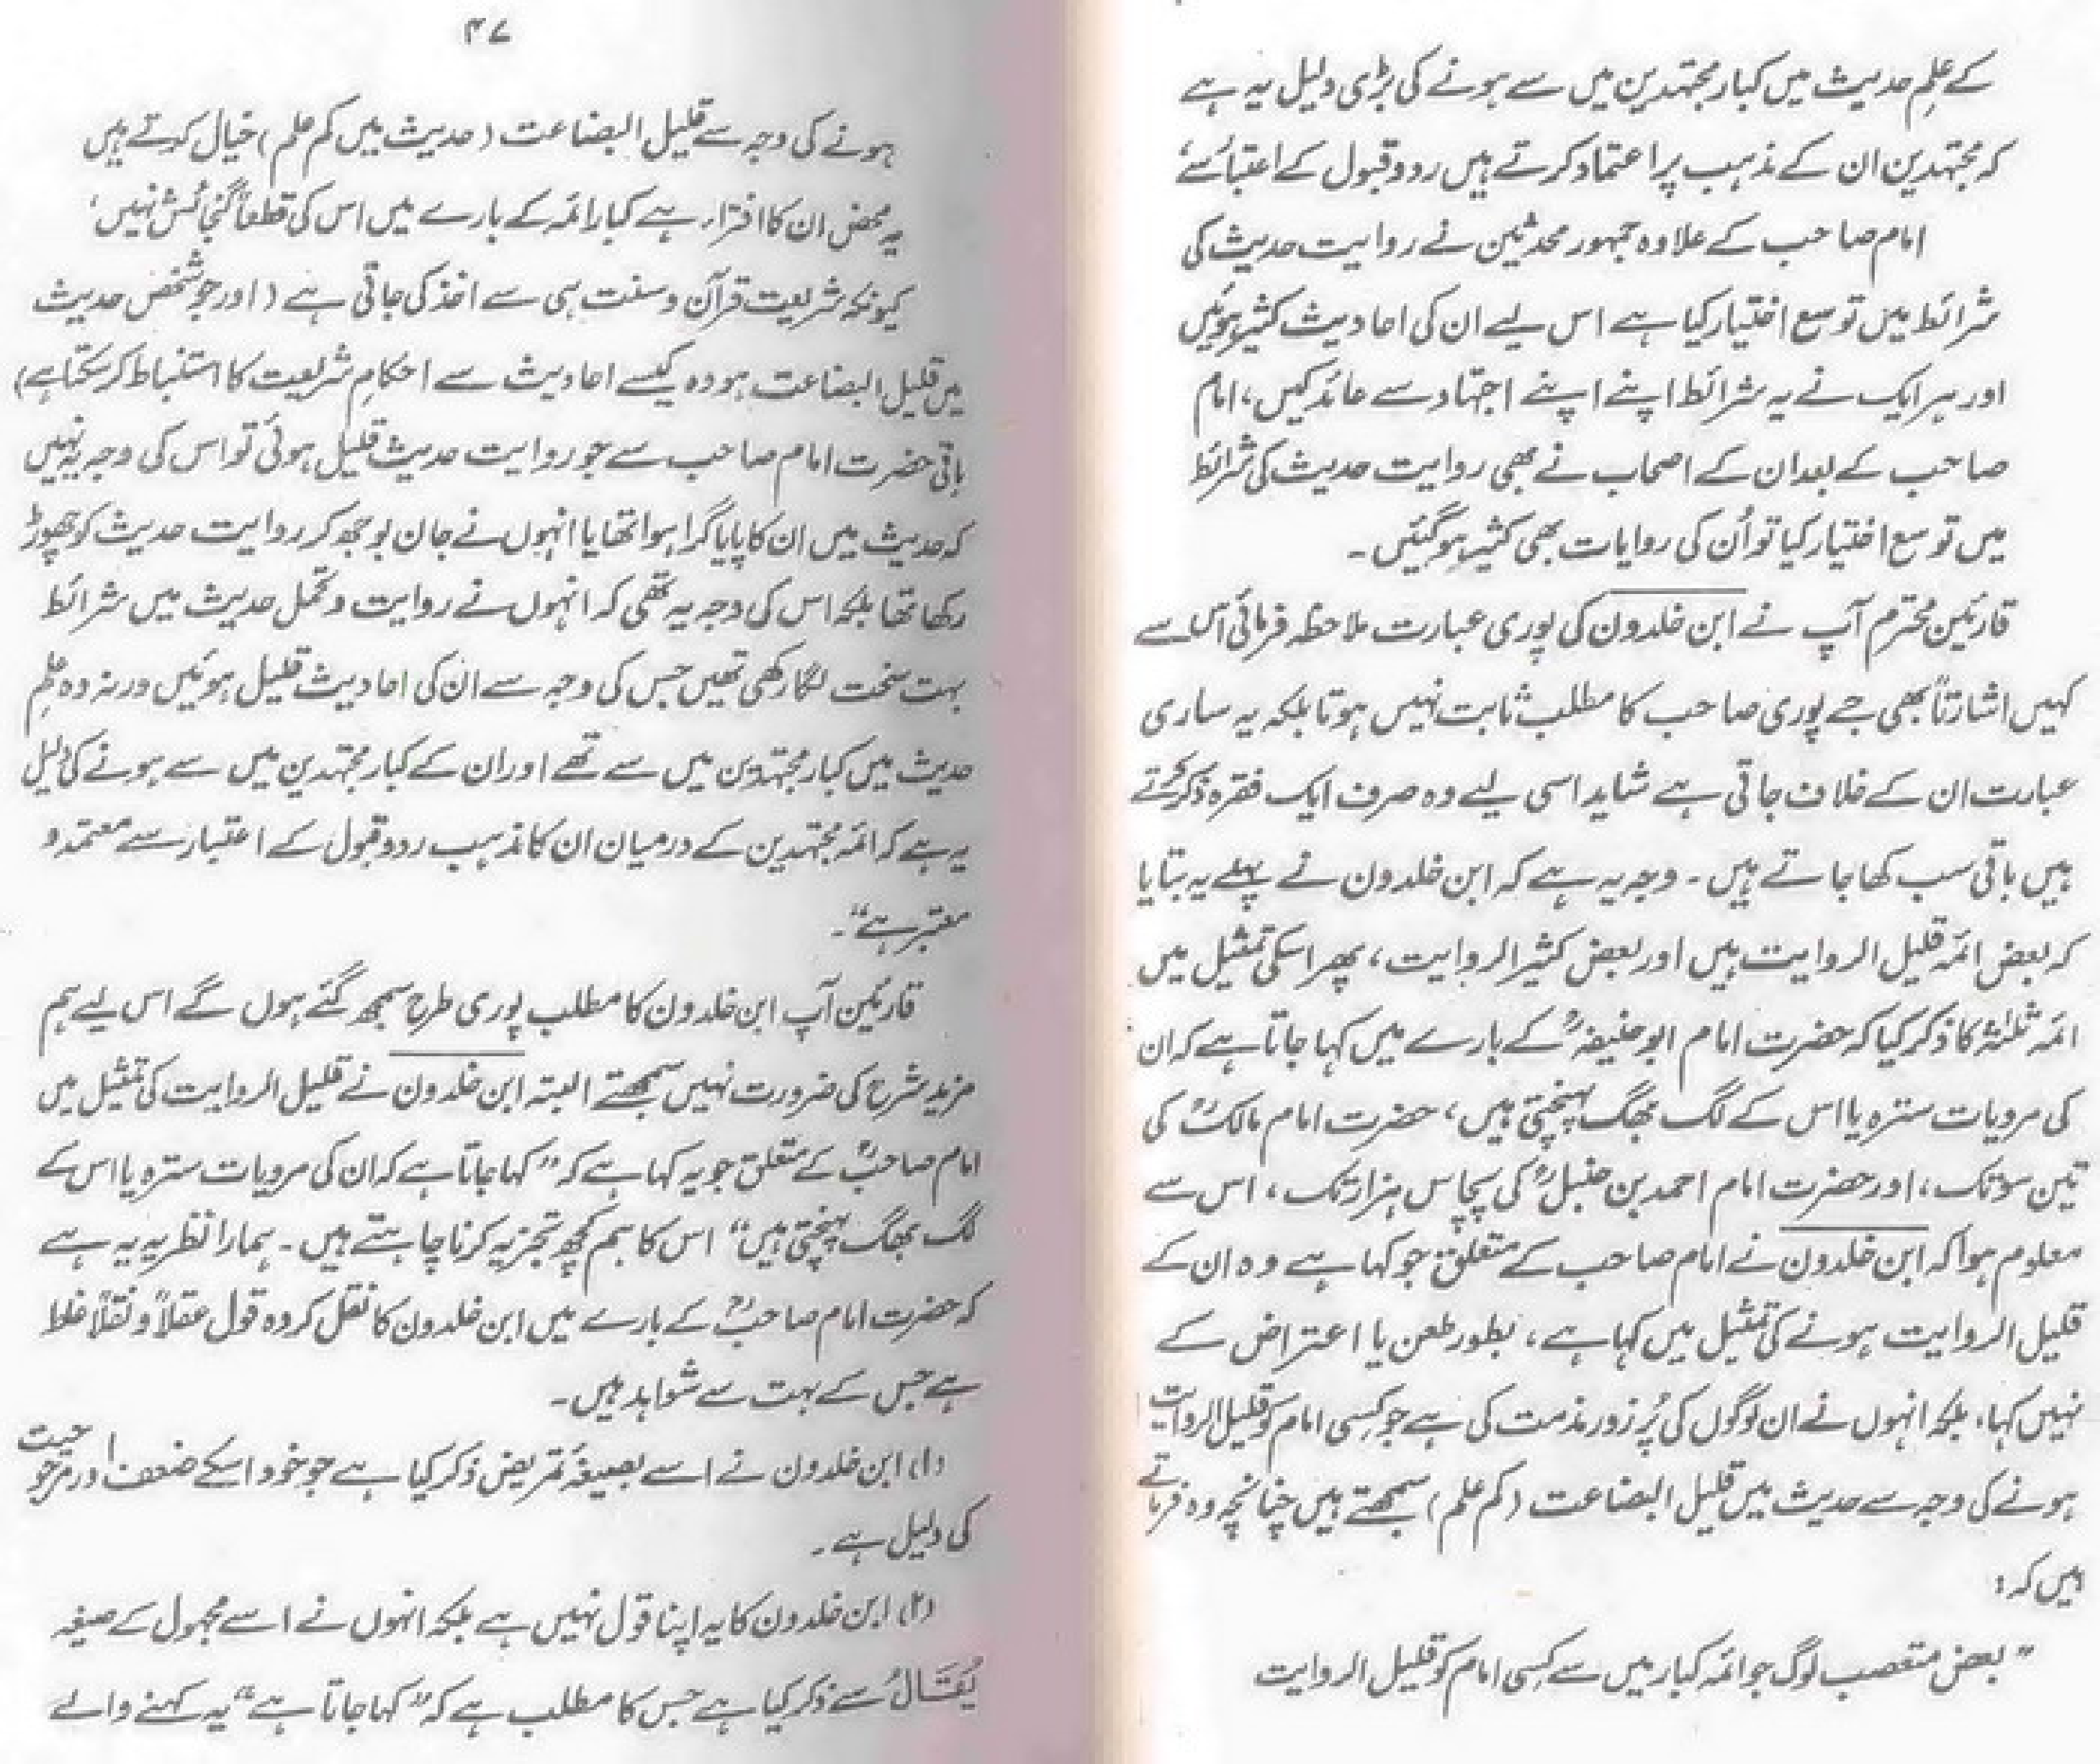 کے علمِ حدیث میں کبار مجتہدین میں سے ہونے کی بڑی دلیل یہ ہے
کہ مجتہدین ان کے مذہب پر اعتماد کرتے ہیں ردوقبول کے اعتبار سے،
امام صاحب کے علاوہ جمہور محدثین نے روایت حدیث کی
شرائط میں توسع اختیار کیا ہے اس لیے ان کی احادیث کثیر ہوئیں
اور ہر ایک نے یہ شرائط اپنے اپنے اجتہاد سے عائد کیں، امام
صاحب کے بعد ان کے اصحاب نے بھی روایت حدیث کی شرائط
میں توسع اختیار کیا تو اُن کی روایات بھی کثیر ہو گئیں۔
قارئین محترم آپ نے ابن خلدون کی پوری عبارت ملاحظہ فرمائی اس سے
کہیں اشارتاً بھی جے پوری صاحب کا مطلب ثابت نہیں ہوتا بلکہ یہ ساری
عبارت ان کے خلاف جاتی ہے شاید اسی لیے وہ صرف ایک فقرہ ذکر کرتے
ہیں باقی سب کھا جاتے ہیں۔ وجہ یہ ہے کہ ابن خلدون نے پہلے یہ بتایا
کہ بعض ائمہ قلیل الروایت ہیں اور بعض کثیر الروایت، پھر اسکی تمثیل میں
ائمہ ثلٰثہ کا ذکر کیا کہ حضرت امام ابوحنیفہؒ کے بارے میں کہا جاتا ہے کہ ان
کی مرویات سترہ یا اس کے لگ بھگ پہنچتی ہیں، حضرت امام مالکؒ کی
تین سو تک، اور حضرت امام احمد بن حنبلؒ کی پچاس ہزار تک، اس سے
معلوم ہوا کہ ابن خلدون نے امام صاحب کے متعلق جو کہا ہے وہ ان کے
قلیل الروایت ہونے کی تمثیل میں کہا ہے، بطور طعن یا اعتراض کے
نہیں کہا، بلکہ انہوں نے ان لوگوں کی پُرزور مذمت کی ہے جو کسی امام کو قلیل الروایت
ہونے کی وجہ سے حدیث میں قلیل البضاعت (کم علم) سمجھتے ہیں چنانچہ وہ فرماتے
ہیں کہ:
”بعض متعصب لوگ جو ائمہ کبار میں سے کسی امام کو قلیل الروایت
۴۷
ہونے کی وجہ سے قلیل البضاعت (حدیث میں کم علم) خیال کرتے ہیں
یہ محض ان کا افتراء ہے کبار ائمہ کے بارے میں اس کی قطعاً گنجائش نہیں،
کیونکہ شریعت قرآن و سنت ہی سے اخذ کی جاتی ہے (اور جو شخص حدیث
میں قلیل البضاعت ہو وہ کیسے احادیث سے احکامِ شریعت کا استنباط کر سکتا ہے)
باقی حضرت امام صاحب سے جو روایت حدیث قلیل ہوئی تو اس کی وجہ یہ نہیں
کہ حدیث میں ان کا پایا گرا ہوا تھا یا انہوں نے جان بوجھ کر روایت حدیث کو چھوڑ
رکھا تھا بلکہ اس کی وجہ یہ تھی کہ انہوں نے روایت و تحمل حدیث میں شرائط
بہت سخت لگا رکھی تھیں جس کی وجہ سے ان کی احادیث قلیل ہوئیں ورنہ وہ علمِ
حدیث میں کبار مجتہدین میں سے تھے اور ان کے کبار مجتہدین میں سے ہونے کی دلیل
یہ ہے کہ ائمہ مجتہدین کے درمیان ان کا مذہب ردوقبول کے اعتبار سے معتمد و
معتبر ہے“۔
قارئین آپ ابن خلدون کا مطلب پوری طرح سمجھ گئے ہوں گے اس لیے ہم
مزید شرح کی ضرورت نہیں سمجھتے البتہ ابن خلدون نے قلیل الروایت کی تمثیل میں
امام صاحبؒ کے متعلق جو یہ کہا ہے کہ ”کہا جاتا ہے کہ ان کی مرویات سترہ یا اس کے
لگ بھگ پہنچتی ہیں“ اس کا ہم کچھ تجزیہ کرنا چاہتے ہیں۔ ہمارا نظریہ یہ ہے
کہ حضرت امام صاحبؒ کے بارے میں ابن خلدون کا نقل کردہ قول عقلاً و نقلاً غلط
ہے جس کے بہت سے شواہد ہیں۔
(۱) ابن خلدون نے اسے بصیغہٴ تمریض ذکر کیا ہے جو خود اسکے ضعف اور مرجوحیت
کی دلیل ہے۔
(۲) ابن خلدون کا یہ اپنا قول نہیں ہے بلکہ انہوں نے اسے مجہول کے صیغہ
یُقَالُ سے ذکر کیا ہے جس کا مطلب ہے کہ ”کہا جاتا ہے“ یہ کہنے والے